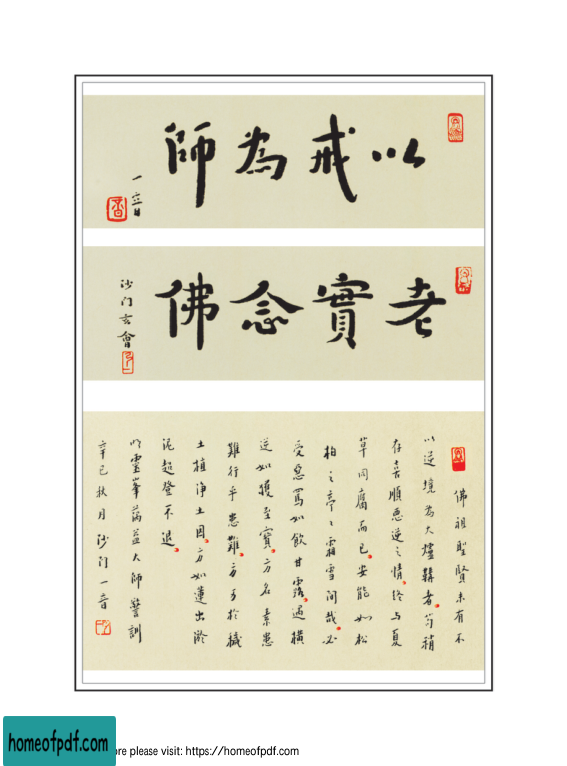 以戒為師
老實念佛
沙门玄會
佛祖聖賢未有不
以逆境為大爐鞲者苟稍
存喜順惡逆之情終与夏
草同腐而已安能如松
柏之亭〻霜雪間哉必
受惡罵如飲甘露遇橫
逆如獲至寶方名素患
難行乎患難方可於穢
土植净土因方如蓮出淤
泥超登不退
明靈峯蕅益大師警訓
辛巳秋月沙门一音
homeofpdf.com
ore please visit: https://homeofpdf.com